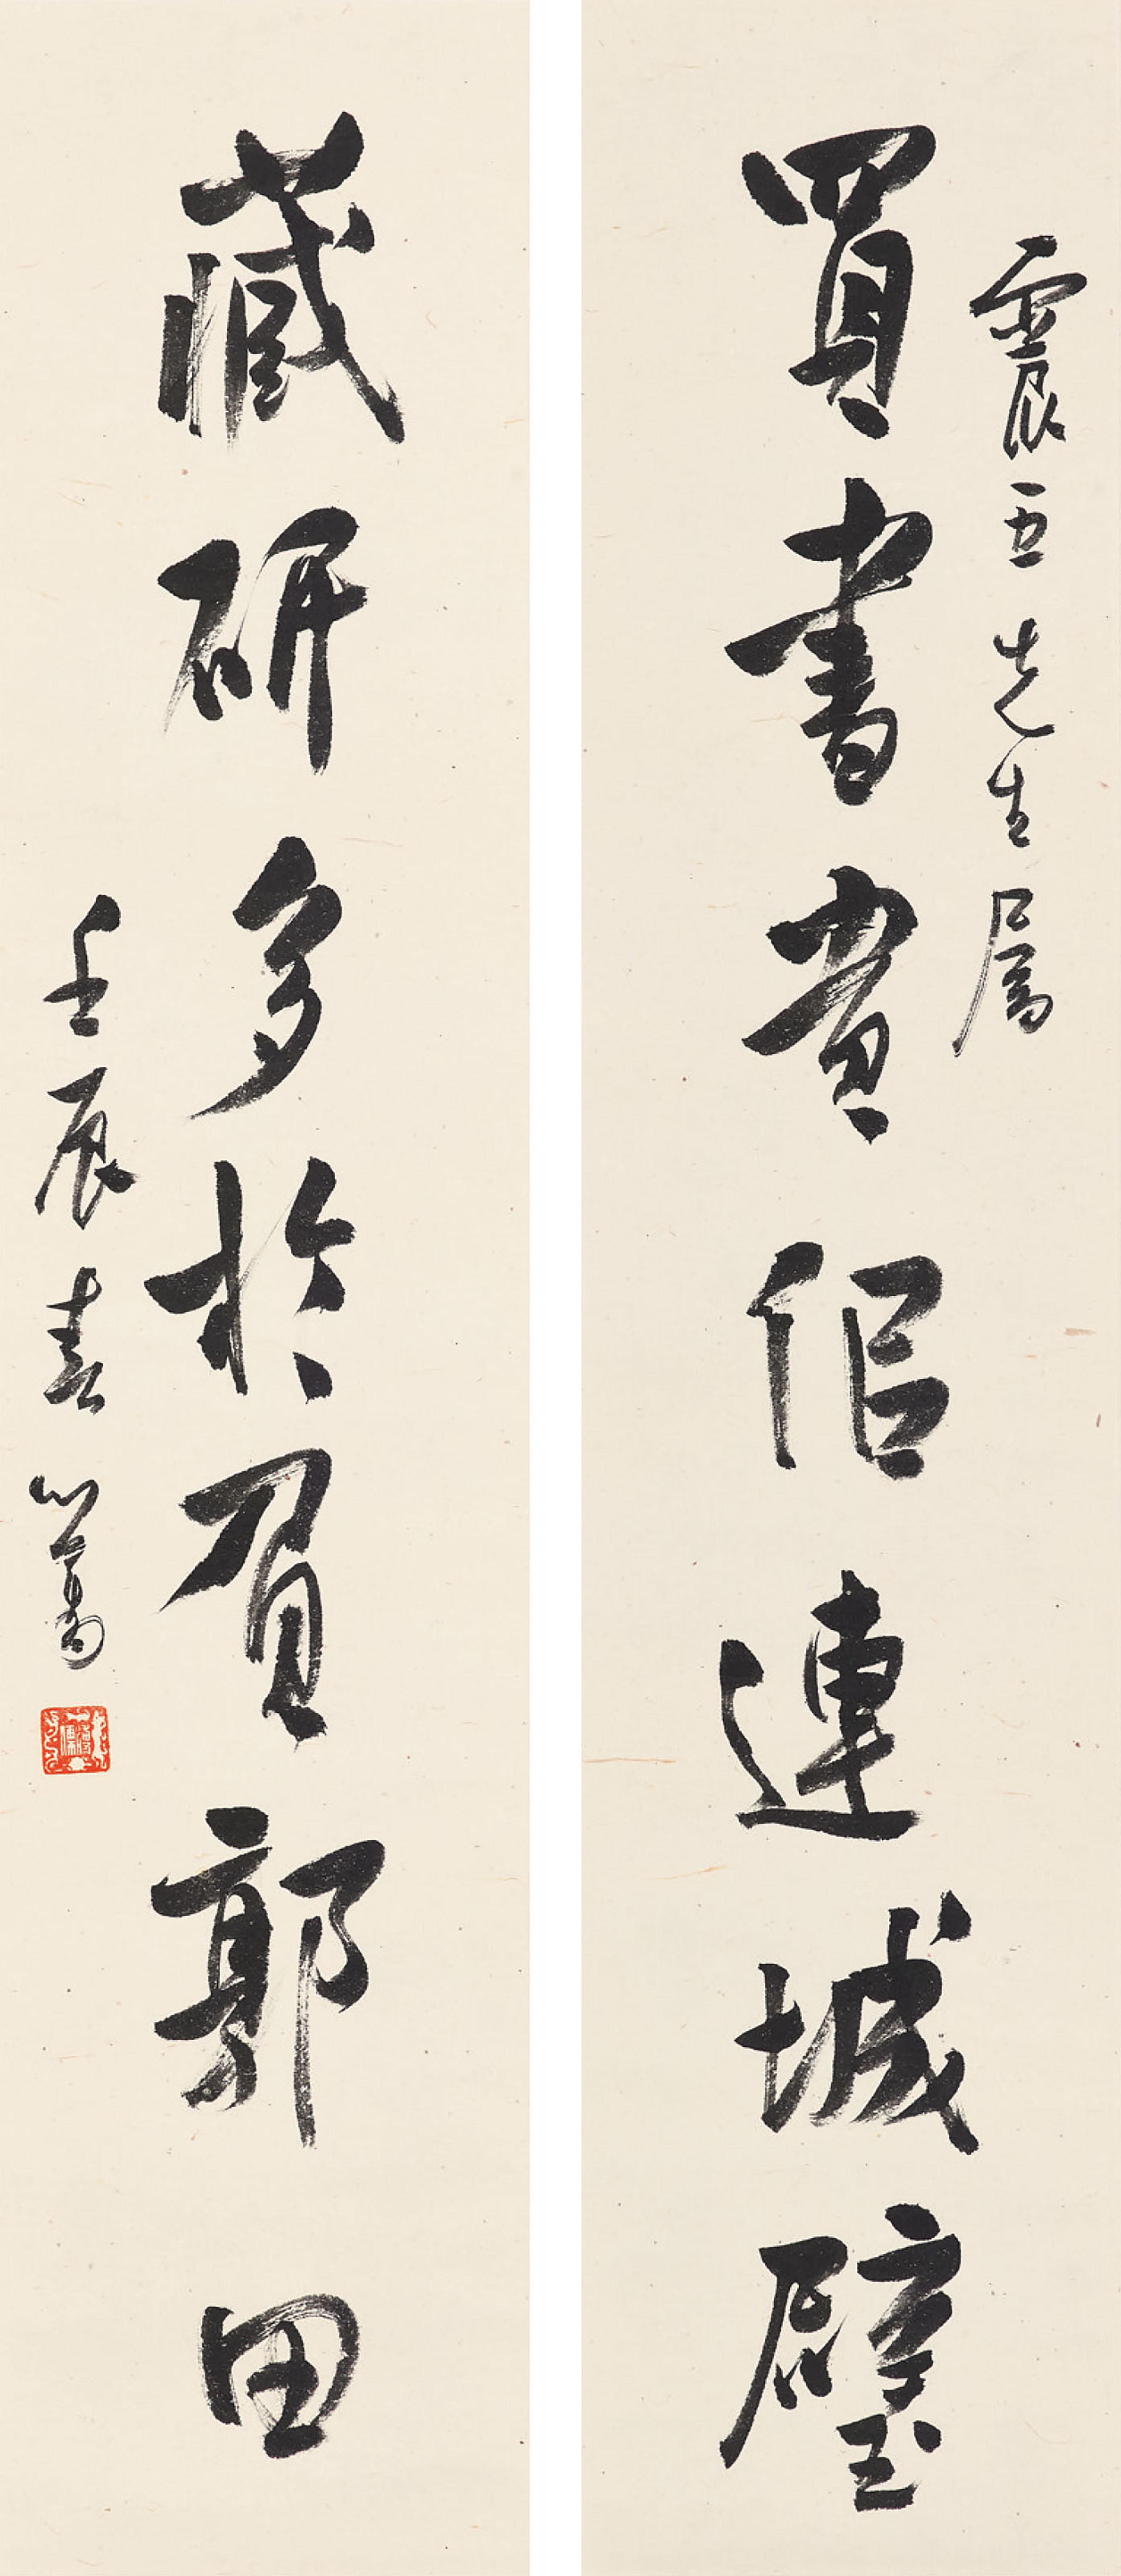 震五先生屬
買書貴佀連城璧
藏研多於負郭田
壬辰春 心畬
溥儒